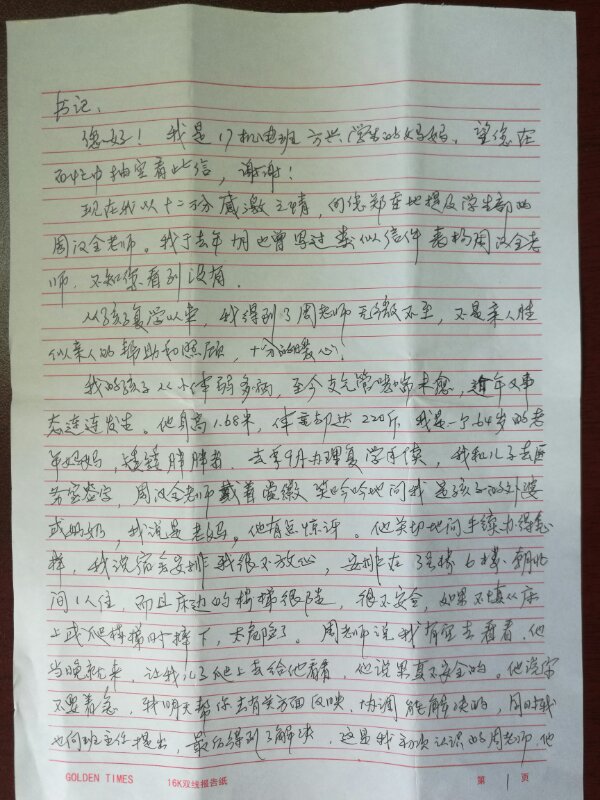 书记：
您好！我是17机电班方兴学生的妈妈，望您在
百忙中抽空看此信，谢谢！
现在我以十二万分感激之情，向您郑重地提及学生部的
周汉全老师。我于去年10月也曾写过类似信件表扬周汉全老
师，不知您看到没有。
从孩子复学以来，我得到了周老师无微不至，不是亲人胜
似亲人的帮助和照顾，十分的爱心！
我的孩子从小体弱多病，至今支气管哮喘未愈，近年又事
态连连发生。他身高1.68米，体重却达220斤，我是一个64岁的老
年妈妈，矮矮胖胖者。去年9月办理复学手续，我和儿子去医
务室签字，周汉全老师戴着党徽笑吟吟地问我是孩子的外婆
或奶奶，我说是老妈，他有点惊讶。他关切地问手续办得怎
样，我说宿舍安排我很不放心，安排在3号楼6楼、朝北
间1人住，而且床边的楼梯很陡，很不安全，如果不慎从床
上或爬楼梯时摔下，太危险了。周老师说我有空去看看，他
当晚就来，让我儿子爬上去给他看看，他说果真不安全的。他说
不要着急，我明天帮你去有关方面反映、协调能解决的，同时我
也向班主任提出，最后得到了解决，这是我初次认识的周老师，他
GOLDEN TIMES
16K双线报告纸
第 1 页